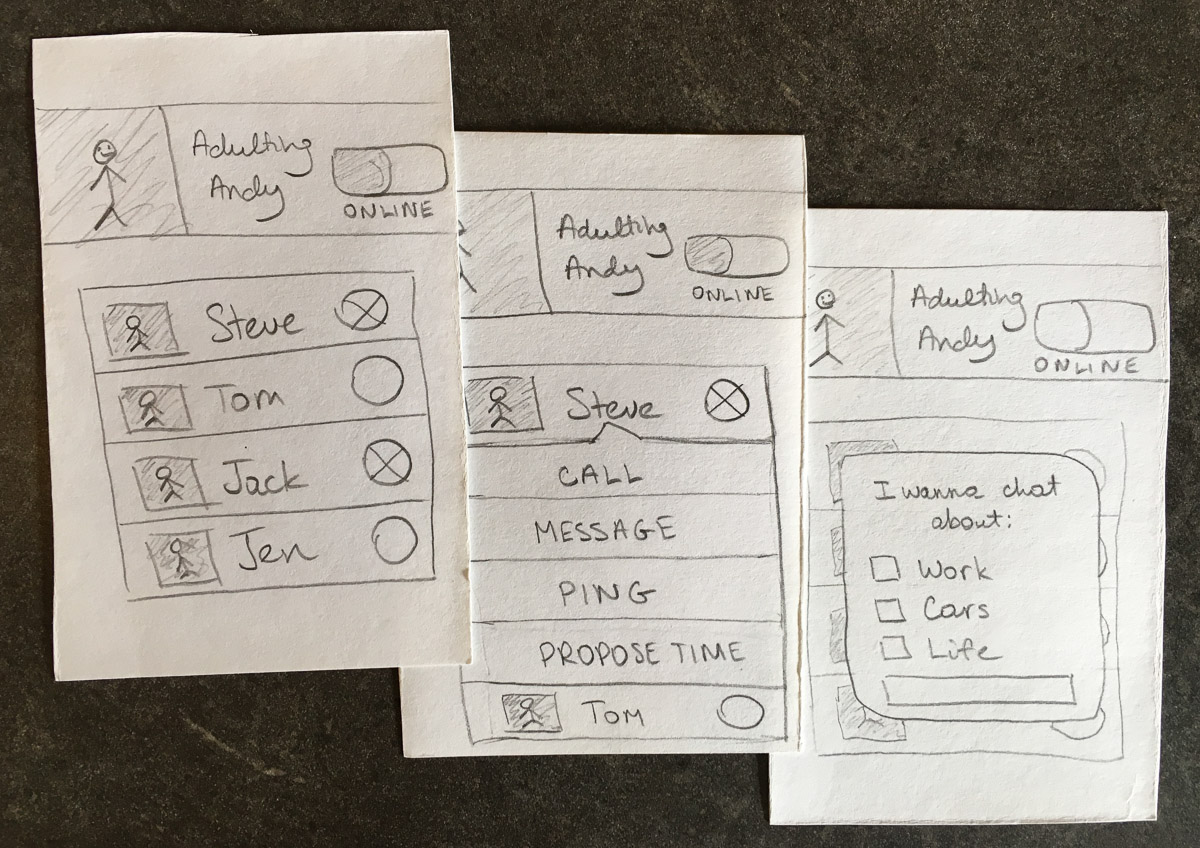 Adulting
Andy
ONLINE
Steve
Tom
Jack
Jen
Adulting
Andy
ONLINE
Steve
CALL
MESSAGE
PING
PROPOSE TIME
TOM
Adulting
Andy
ONLINE
I wanna chat
about:
Work
Cars
Life